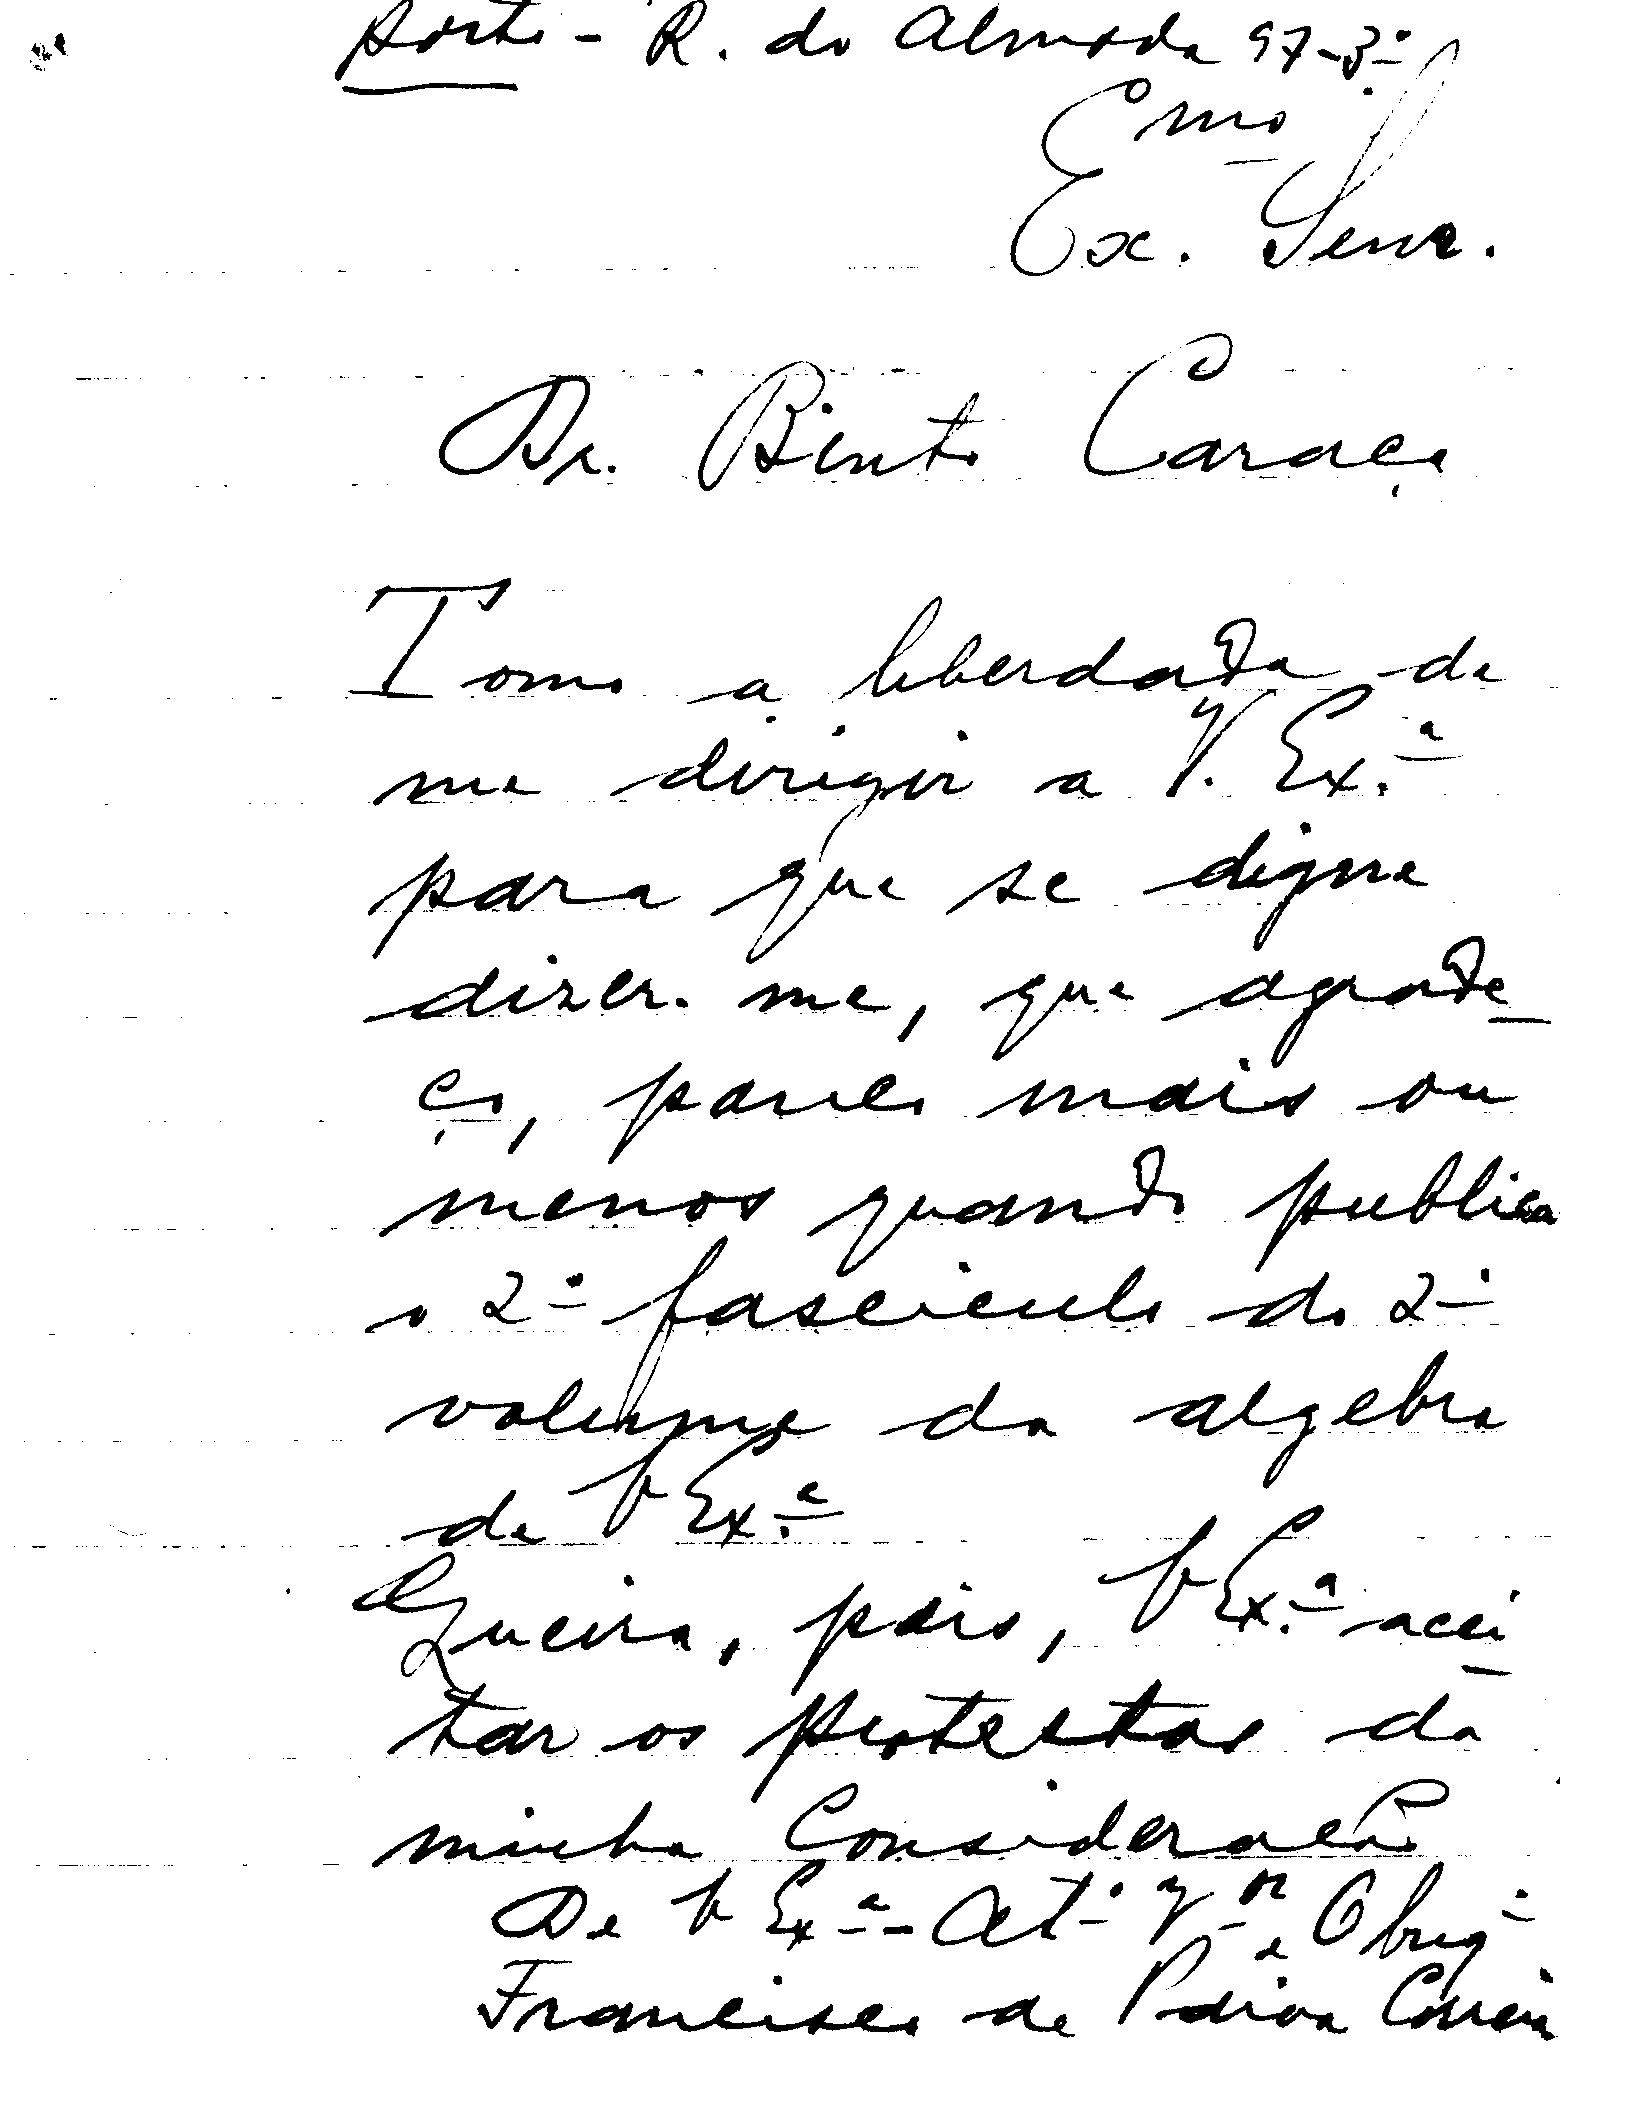 Porto - R. do Almada 97-3º
Emo
Ex. Senr.
Dr. Bento Caraça
Tomo a liberdade de
me dirigir a V. Ex.ª
para que se digne
dizer-me, que agrade-
ço, pouco mais ou
menos quando publica
o 2º fasciculo do 2º
volume da algebra
de V Ex.ª
Queira, pois, V Ex.ª acei-
tar os protestos da
minha Consideração
De V Ex.ª - Atº Vor e Obrigº
Francisco de Paiva Correia